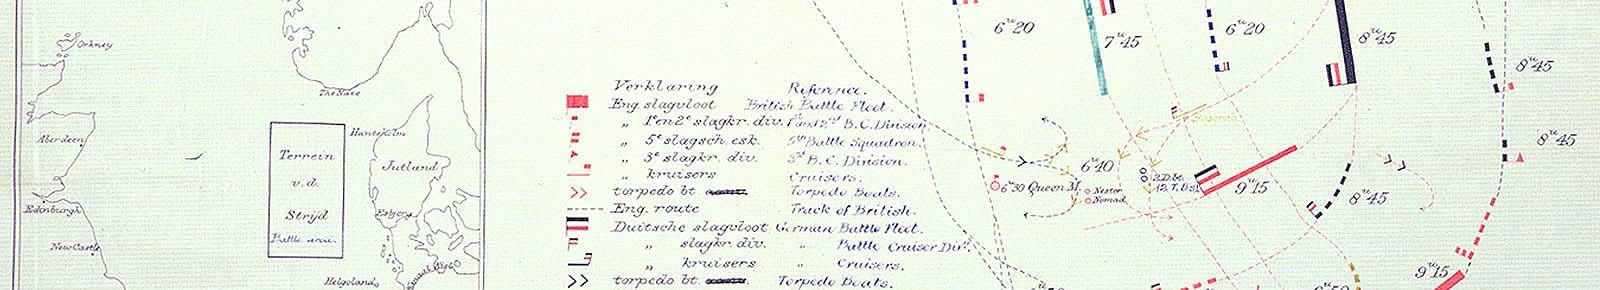 Orkney
The Naze
Aberdeen
Hantsholm
Terrein
v.d.
Strijd
Battle area.
Jutland
Esbjerg
Edinburgh
New Castle
Helgoland
Verklaring Reference.
Eng. slagvloot British Battle Fleet.
„ 1e en 2e slagkr. div. 1st and 2nd B.C. Division.
„ 5e slagsch. esk. 5th Battle Squadron.
„ 3e slagkr. div. 3d B.C. Division.
„ kruisers Cruisers.
torpedo bt Torpedo Boats.
Eng. route Track of British.
Duitsche slagvloot German Battle Fleet.
„ slagkr. div. „ Battle Cruiser Div.
„ kruisers „ Cruisers.
torpedo bt. Torpedo Boats.
6u20
7u45
6u20
8u45
8u45
8u45
6u40
6u30 Queen M.
Nestor
Nomad
9u15
8u45
9u15
6u50